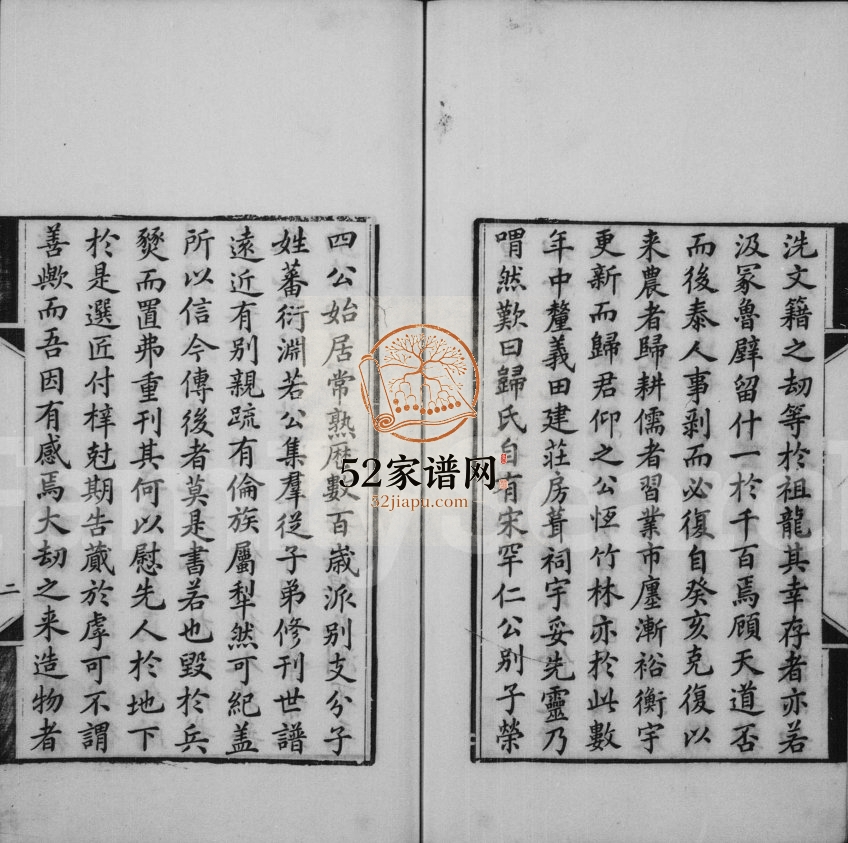 洗文籍之劫等於祖龍其幸存者亦若
汲冢魯壁留什一於千百焉顧天道否
而後泰人事剥而必復自癸亥克復以
来農者歸耕儒者習業市廛漸裕衡宇
更新而歸君仰之公恆竹林亦於此數
年中釐義田建莊房葺祠宇妥先靈乃
喟然歎曰歸氏自有宋罕仁公別子榮
四公始居常熟厯數百歲派別支分子
姓蕃衍淵若公集羣從子弟修刊世譜
遠近有別親疏有倫族屬犁然可紀蓋
所以信今傳後者莫是書若也毀於兵
燹而置弗重刊其何以慰先人於地下
於是選匠付梓尅期告蕆於虖可不謂
善歟而吾因有感焉大劫之来造物者
二
52家谱网
52jiapu.com